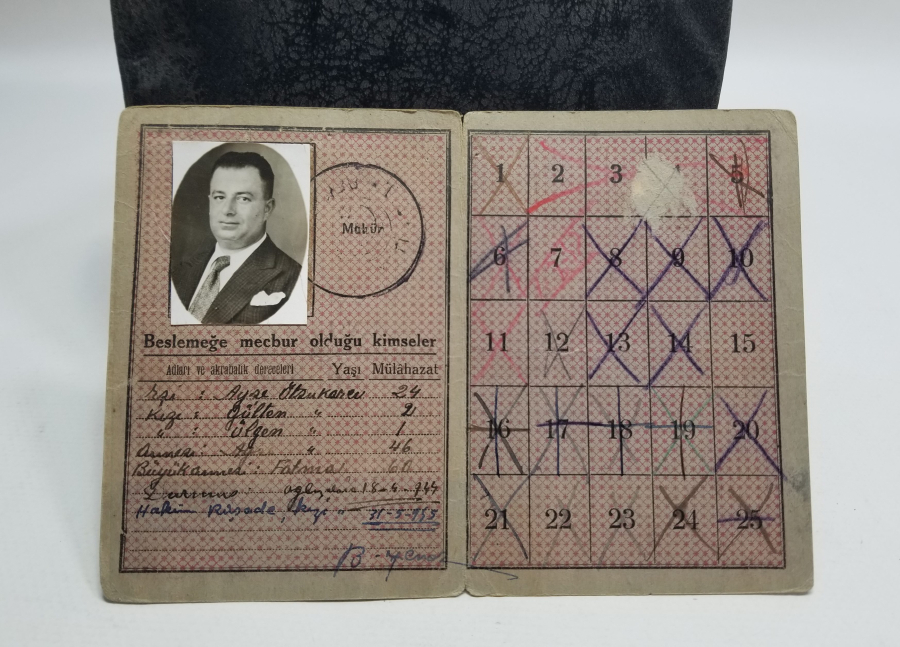 Mühür
Beslemeğe mecbur olduğu kimseler
Adları ve akrabalık dereceleri Yaşı Mülâhazat
: Ayşe 24
Kızı : Gülten " 2
" : Ülgen " 1
Annesi : 46
Büyükannesi : Fatma 60
18-4-944
Hakim kızı " 31-5-955
1 2 3 4 5
6 7 8 9 10
11 12 13 14 15
16 17 18 19 20
21 22 23 24 25